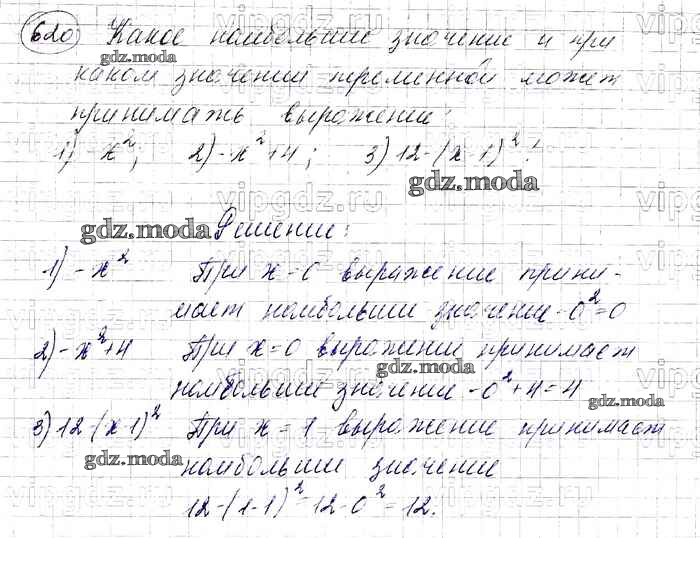 620) Какое наибольшие значение и при
каком значении переменной может
принимать выражение:
1) -x²; 2) -x²+4; 3) 12-(x-1)²?
Решение:
1) -x² При x=0 выражение прини-
мает наибольшии значение -0²=0
2) -x²+4 При x=0 выражение принимает
наибольшии значение -0²+4=4
3) 12-(x-1)² При x=1 выражение принимает
наибольшии значение
12-(1-1)²=12-0²=12.
gdz.moda
gdz.moda
gdz.moda
gdz.moda
gdz.moda
gdz.moda
vipgdz.ru